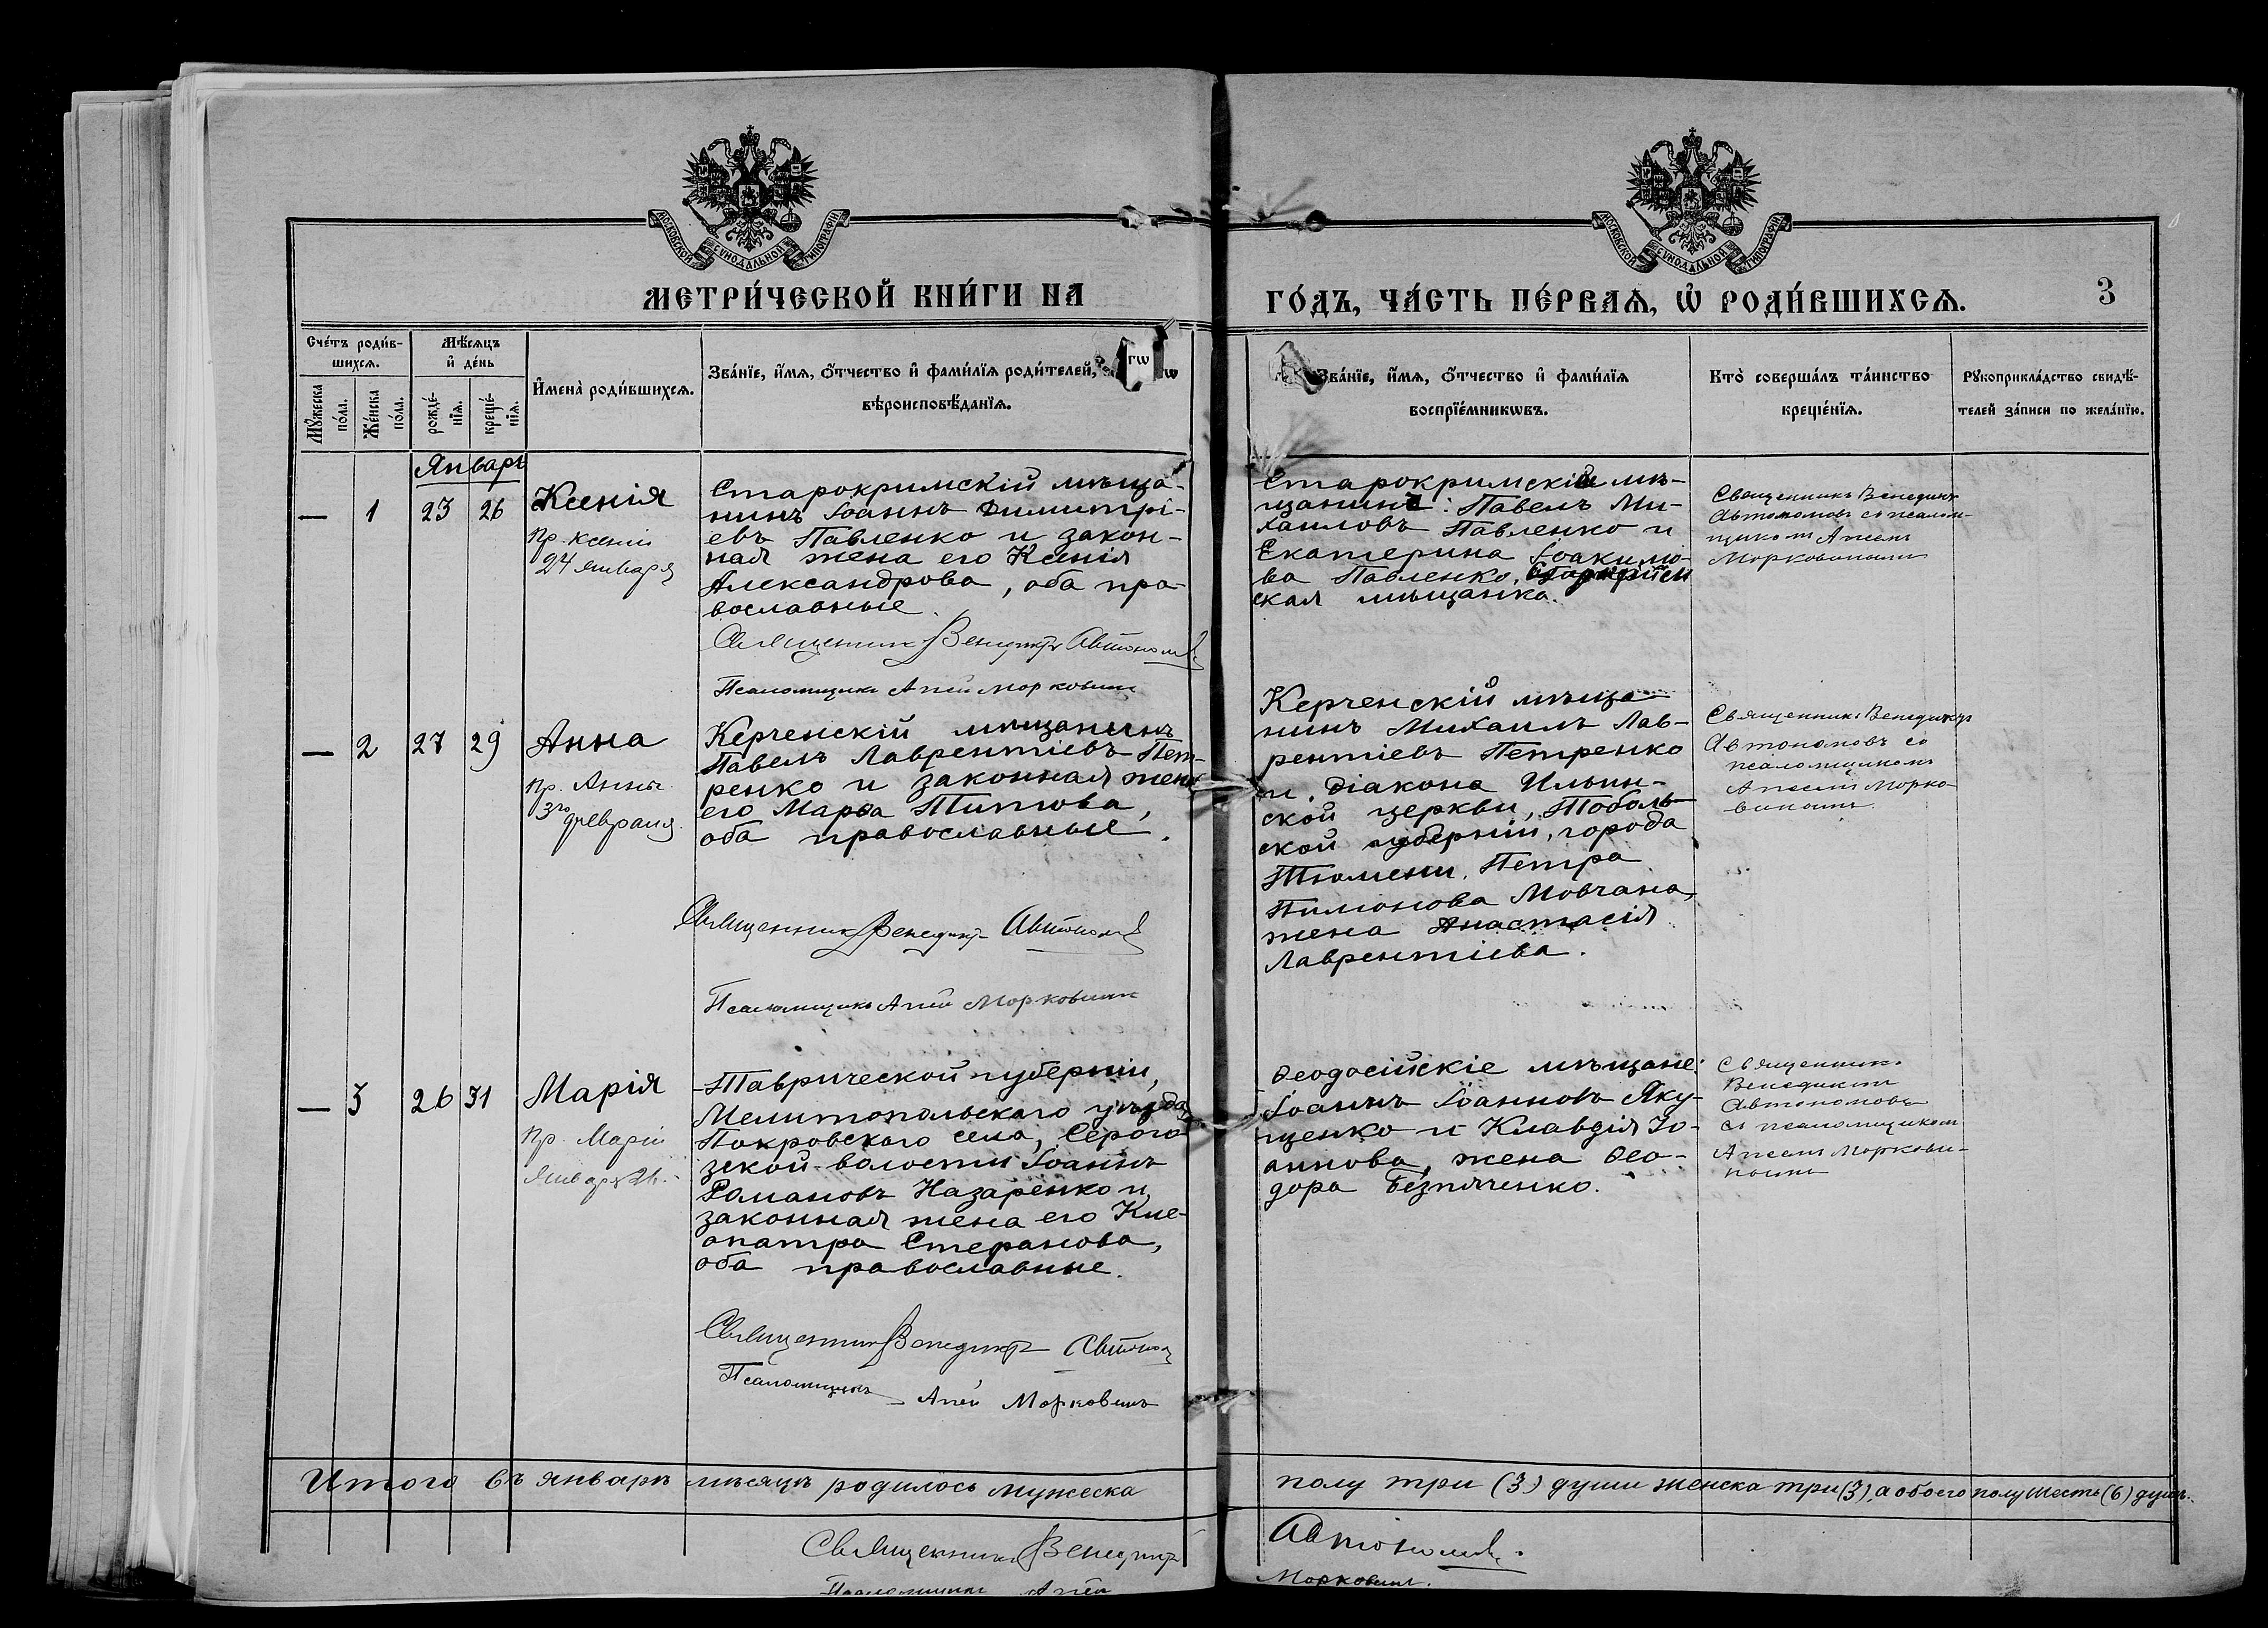 МОСКОВСКОЙ СѴНОДАЛЬНОЙ ТИПОГРАФІИ
МОСКОВСКОЙ СѴНОДАЛЬНОЙ ТИПОГРАФІИ
МЕТРИ́ЧЕСКОЙ КНИ́ГИ НА
ГО́ДЪ, ЧА́СТЬ ПЕ́РВАѦ, Ѽ РОДИ́ВШИХСѦ.
3
Сче́тъ роди́в-
шихсѧ.
Мꙋжеска
по́ла.
Же́нска
по́ла.
Мѣ́сѧцъ
и҆ де́нь
рожде́-
нїѧ.
креще́-
нїѧ.
И҆мена̀ роди́вшихсѧ.
Зва́нїе, и҆́мѧ, ѻ҆́тчество и҆ фами́лїѧ роди́телей,
вѣроисповѣ́данїѧ.
Зва́нїе, и҆́мѧ, ѻ҆́тчество и҆ фами́лїѧ
воспрїе́мникѡвъ.
Кто̀ соверша́лъ та́инство
креще́нїѧ.
Рꙋкоприкла́дство свидѣ́-
телей за́писи по жела́нїю.
Январь
— 1 23 26
Ксенія
Пр. Ксеніи
24 января
Старокримскій мѣща-
нинъ Іоаннъ Димитрі-
евъ Павленко и закон-
ная жена его Ксенія
Александрова, оба пра-
вославные.
Священникъ Венедиктъ Автономовъ
Псаломщикъ Апей Морковинъ
Старокримскій мѣ-
щанинъ: Павелъ Ми-
хаиловъ Павленко и
Екатерина Іоакимо-
ва Павленко, Старокрим
ская мѣщанка.
Священникъ Венедиктъ
Автономовъ съ псалом-
щикомъ Апеем
Морковиным
— 2 27 29
Анна
Пр. Анны
3го февраля.
Керченскій мѣщанинъ
Павелъ Лаврентіевъ Пет-
ренко и законная жена
его Марѳа Титова,
оба православные.
Священникъ Венедиктъ Автономовъ
Псаломщикъ Апей Морковинъ
Керченскій мѣща-
нинъ Михаилъ Лав-
рентіевъ Петренко
и діакона Ильин-
ской церкви, Тоболь-
ской губерніи, города
Тюмени, Петра
Пимонова Мовчана,
жена Анастасія
Лаврентіева.
Священникъ Венедиктъ
Автономовъ съ
псаломщиком
Апеем Морко-
виным.
— 3 26 31
Марія
Пр. Маріи
Января 26.
Таврической губерніи,
Мелитопольскаго уѣзда
Покровскаго села, Серого-
зской волости Іоаннъ
Романовъ Назаренко и
законная жена его Кле-
опатра Стефанова,
оба православные.
Священникъ Венедиктъ Автоном
Псаломщикъ Апей Морковинъ
Ѳеодосійскіе мѣщане:
Іоаннъ Іоанновъ Яку-
щенко и Клавдія Іо-
аннова, жена Ѳео-
дора Безпятченко.
Священникъ
Венедиктъ
Автономовъ
съ псаломщиком
Апеем Моркови-
ным
Итого въ январѣ мѣсяцѣ родилось мужеска
полу три (3) души женска три (3), а обоего полу шесть (6) душъ.
Священникъ Венедиктъ
Автономовъ.
Псаломщикъ Апей
Морковинъ.